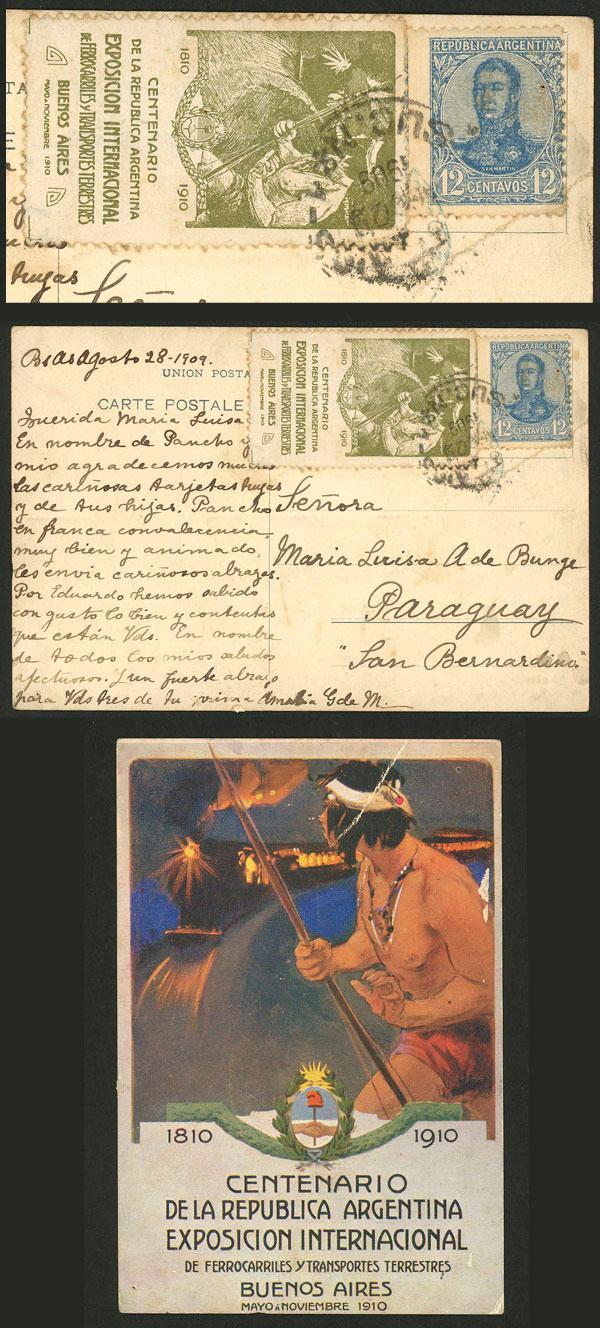 CENTENARIO
DE LA REPUBLICA ARGENTINA
EXPOSICION INTERNACIONAL
DE FERROCARRILES Y TRANSPORTES TERRESTRES
BUENOS AIRES
MAYO A NOVIEMBRE 1910
1810
1910
REPUBLICA ARGENTINA
SAN MARTIN
12 CENTAVOS 12
1909
hugas
Bs As Agosto 28-1909.
UNION POSTA
CARTE POSTALE
Querida Maria Luisa
En nombre de Pancho y
mio agradecemos
las cariñosas tarjetas tuyas
y de tus hijas. Pancho
en franca convalecencia,
muy bien y animado,
les envia cariñosos abrazos.
Por Eduardo hemos sabido
con gusto lo bien y contentas
que están Vds. En nombre
de todos los mios saludos
afectuosos. I un fuerte abrazo
para Vds tres de tu prima Amalia G de M.
CENTENARIO
DE LA REPUBLICA ARGENTINA
EXPOSICION INTERNACIONAL
DE FERROCARRILES Y TRANSPORTES TERRESTRES
BUENOS AIRES
MAYO A NOVIEMBRE 1910
1810
1910
REPUBLICA ARGENTINA
12 CENTAVOS 12
1909
Señora
Maria Luisa A de Bunge
Paraguay
"San Bernardino"
1810 1910
CENTENARIO
DE LA REPUBLICA ARGENTINA
EXPOSICION INTERNACIONAL
DE FERROCARRILES Y TRANSPORTES TERRESTRES
BUENOS AIRES
MAYO A NOVIEMBRE 1910